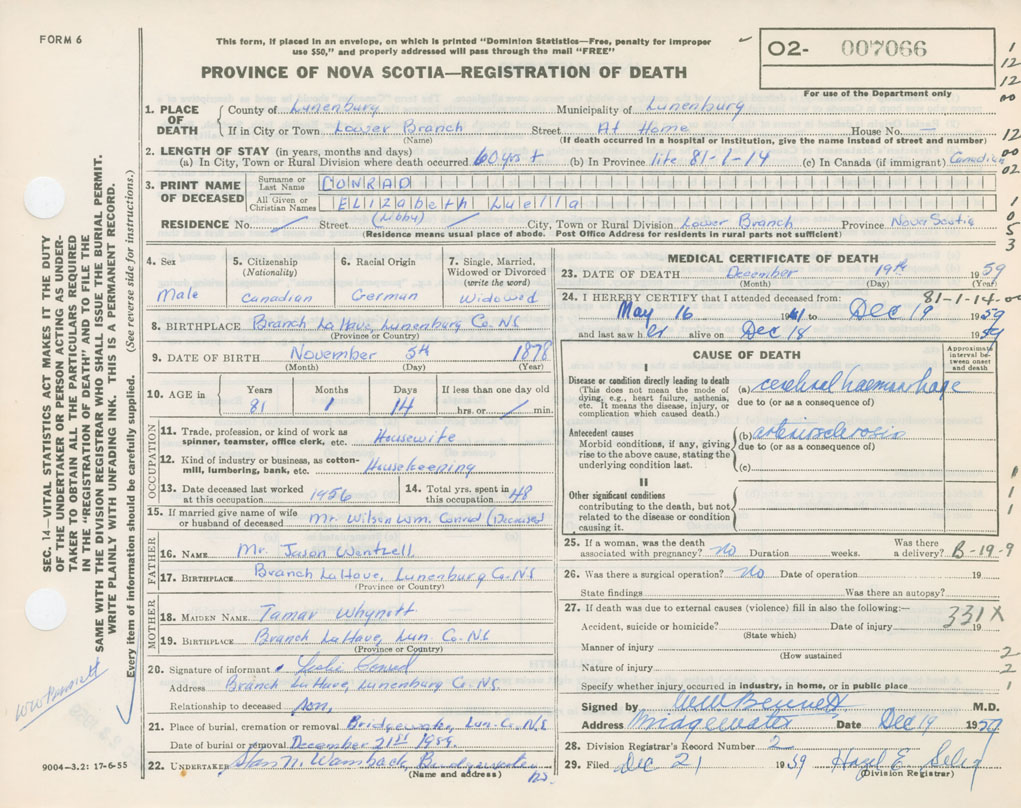 FORM 6
This form, if placed in an envelope, on which is printed "Dominion Statistics—Free, penalty for improper
use $50," and properly addressed will pass through the mail "FREE"
O2- 007066
For use of the Department only
PROVINCE OF NOVA SCOTIA—REGISTRATION OF DEATH
1. PLACE OF DEATH
County of Lunenburg Municipality of Lunenburg
If in City or Town Lower Branch Street At Home House No. —
(Name) (If death occurred in a hospital or institution, give the name instead of street and number)
2. LENGTH OF STAY (in years, months and days)
(a) In City, Town or Rural Division where death occurred 60 yrs + (b) In Province life 81-1-14 (c) In Canada (if immigrant) Canadian
3. PRINT NAME OF DECEASED
Surname or Last Name CONRAD
All Given or Christian Names Elizabeth Luella
(Libby)
RESIDENCE No. Street City, Town or Rural Division Lower Branch Province Nova Scotia
(Residence means usual place of abode. Post Office Address for residents in rural parts not sufficient)
4. Sex
Male
5. Citizenship
(Nationality)
Canadian
6. Racial Origin
German
7. Single, Married,
Widowed or Divorced
(write the word)
Widowed
8. BIRTHPLACE Branch LaHave, Lunenburg Co. NS
(Province or Country)
9. DATE OF BIRTH November 5th 1878
(Month) (Day) (Year)
10. AGE in
Years Months Days If less than one day old
81 1 14 hrs. or min.
OCCUPATION
11. Trade, profession, or kind of work as
spinner, teamster, office clerk, etc. Housewife
12. Kind of industry or business, as cotton-
mill, lumbering, bank, etc. Housekeeping
13. Date deceased last worked
at this occupation 1956
14. Total yrs. spent in
this occupation 48
15. If married give name of wife
or husband of deceased Mr. Wilson Wm. Conrad (Deceased
FATHER
16. NAME Mr. Jason Wentzell
17. BIRTHPLACE Branch LaHave, Lunenburg Co. NS
(Province or Country)
MOTHER
18. MAIDEN NAME Tamar Whynott
19. BIRTHPLACE Branch LaHave, Lun. Co. NS
(Province or Country)
20. Signature of informant Leslie Conrad
Address Branch LaHave, Lunenburg Co. NS.
Relationship to deceased son,
21. Place of burial, cremation or removal Bridgewater, Lun. Co. N/S
Date of burial or removal December 21st 1959.
22. UNDERTAKER N. Wambach, Bridgewater
(Name and address) NS.
MEDICAL CERTIFICATE OF DEATH
23. DATE OF DEATH December 19th 1959
(Month) (Day) (Year)
81-1-14-00
24. I HEREBY CERTIFY that I attended deceased from:
May 16 to Dec 19 1959
and last saw her alive on Dec 18 1959
CAUSE OF DEATH
Approximate
interval be-
tween onset
and death
I
Disease or condition directly leading to death
(This does not mean the mode of
dying, e.g., heart failure, asthenia,
etc. It means the disease, injury, or
complication which caused death.)
(a) cerebral haemorrhage
due to (or as a consequence of)
Antecedent causes
Morbid conditions, if any, giving
rise to the above cause, stating the
underlying condition last.
(b) arteriosclerosis
due to (or as a consequence of)
(c)
II
Other significant conditions
contributing to the death, but not
related to the disease or condition
causing it.
25. If a woman, was the death
associated with pregnancy? no Duration weeks. Was there
a delivery? B-19-9
26. Was there a surgical operation? no Date of operation 19
State findings Was there an autopsy?
27. If death was due to external causes (violence) fill in also the following:—
331X
Accident, suicide or homicide? Date of injury 19
(State which)
Manner of injury
(How sustained
Nature of injury
Specify whether injury occurred in industry, in home, or in public place
Signed by WW Bennett M.D.
Address Bridgewater Date Dec 19 1959
28. Division Registrar's Record Number 2
29. Filed Dec 21 1959 Hazel E. Selig
(Division Registrar)
SEC. 14—VITAL STATISTICS ACT MAKES IT THE DUTY
OF THE UNDERTAKER OR PERSON ACTING AS UNDER-
TAKER TO OBTAIN ALL THE PARTICULARS REQUIRED
IN THE "REGISTRATION OF DEATH" AND TO FILE THE
SAME WITH THE DIVISION REGISTRAR WHO SHALL ISSUE THE BURIAL PERMIT.
WRITE PLAINLY WITH UNFADING INK. THIS IS A PERMANENT RECORD.
Every item of information should be carefully supplied. (See reverse side for instructions.)
WW Bennett
9004-3.2: 17-6-55
1
12
12
00
12
00
02
1
0
5
3
1
1
1
2
2
1